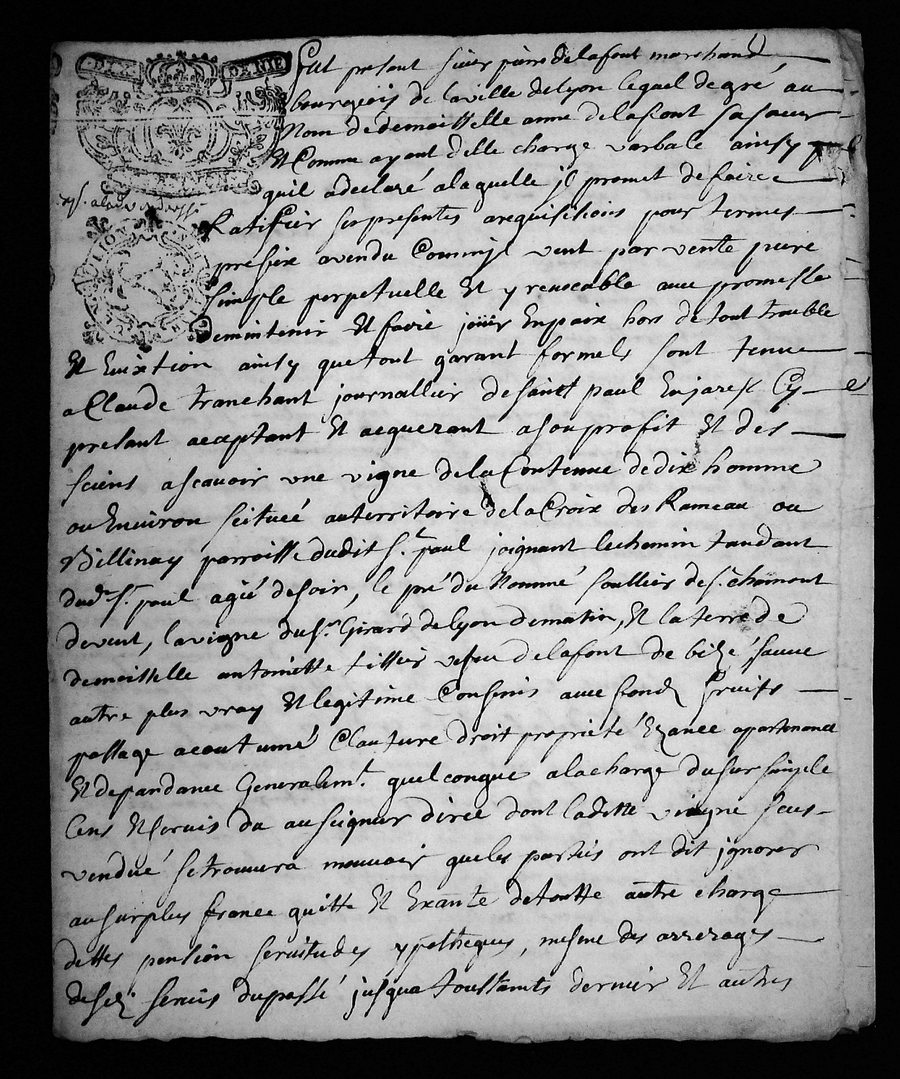 DENIE
Fut present sieur pierre delafont marchand
bourgeois de laville delyon lequel degré au
Nom dedemoiselle anne delafont sa soeur
Et Comme ayant delle charge varbale ainsy
quil adeclaré alaquelle jl promet defaire
Ratiffier ses presentes arequisitions pour termes
prefix avendu Comm jl vent par vente pure
simple perpetuelle Et yrevocable avec promesse
demintenir Et faire joüir Enpaix hors detout trouble
Et Euixtion ainsy quetout garant formels sont tenue
aClaude tranchant journallier desaint paul Enjarest Cy
presant aceptant Et aequerant asonprofit Et des
sciens ascavoir vne vigne delaContenue dedix homme
ou Enuiron scitueé auterritoire delaCroix des Rameau ou
Billinay parroisse dudit St. paul joignant lechemin tandant
dud. St. paul a desoir, le pré du Nommé soullier de St. chamont
devent, lavigne du Sr. Girard delyon dematin, Et laterre de
demoiselle antoinette tissier vefue delafont de bizé sauue
autre plus vray Et legitime Confins avec fondz fruits
passage acoutumé Clauture droit propriété Ezance apartenance
Et depandance Generalemt. quelconque alacharge dusur simple
Cens Et seruis du auseigneur direc dont ladette vigne sous-
venduë setrouuera mouuair queles parties ont dit jgnorer
ausurplus france quitte Et Exante detoutte autre charge
dettes pension seruitudes ypotheques, mesme des arrerages
desdz. seruis dupassé jusqua toussaints dernier Et autres